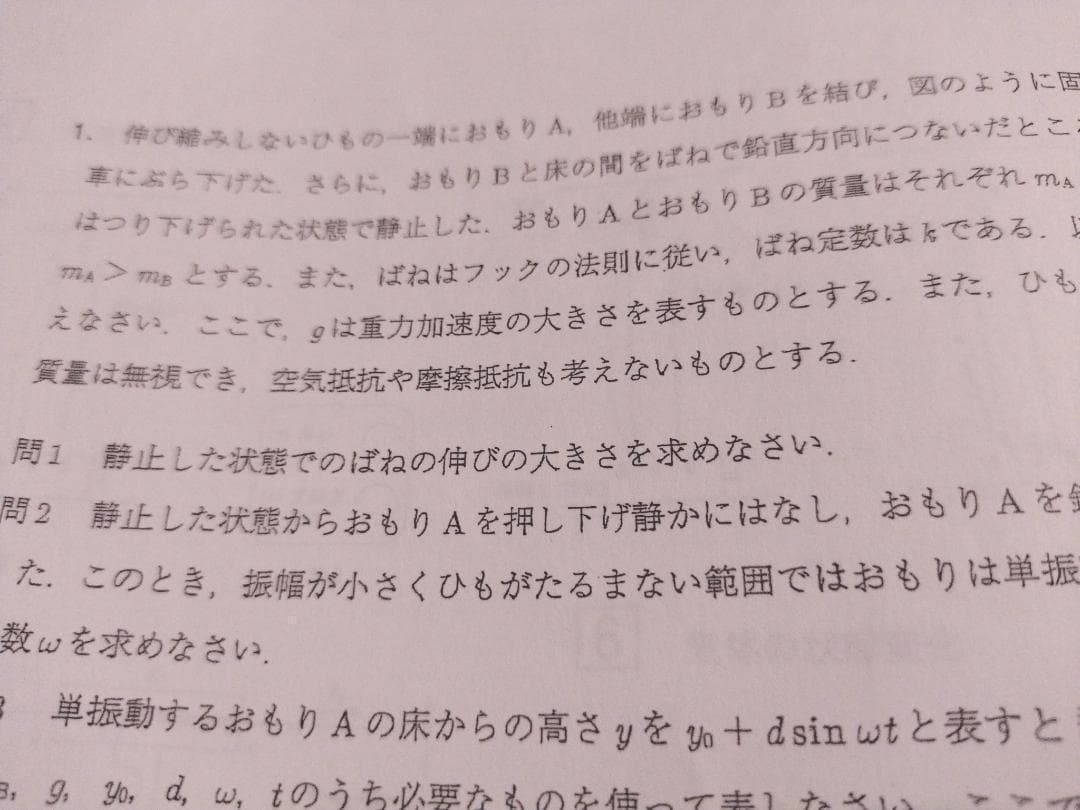 1. 伸び縮みしないひもの一端におもりA，他端におもりBを結び，図のように固
車にぶら下げた．さらに，おもりBと床の間をばねで鉛直方向につないだとこ
はつり下げられた状態で静止した．おもりAとおもりBの質量はそれぞれ mA
mA > mB とする．また，ばねはフックの法則に従い，ばね定数は k である．
えなさい．ここで，g は重力加速度の大きさを表すものとする．また，ひも
質量は無視でき，空気抵抗や摩擦抵抗も考えないものとする．
問1 静止した状態でのばねの伸びの大きさを求めなさい．
問2 静止した状態からおもりAを押し下げ静かにはなし，おもりAを
た．このとき，振幅が小さくひもがたるまない範囲ではおもりは単振
数ωを求めなさい．
3 単振動するおもりAの床からの高さ y を y0 + d sin ωt と表すと
B, g, y0, d, ω, t のうち必要なものを使って表しなさい．ここで